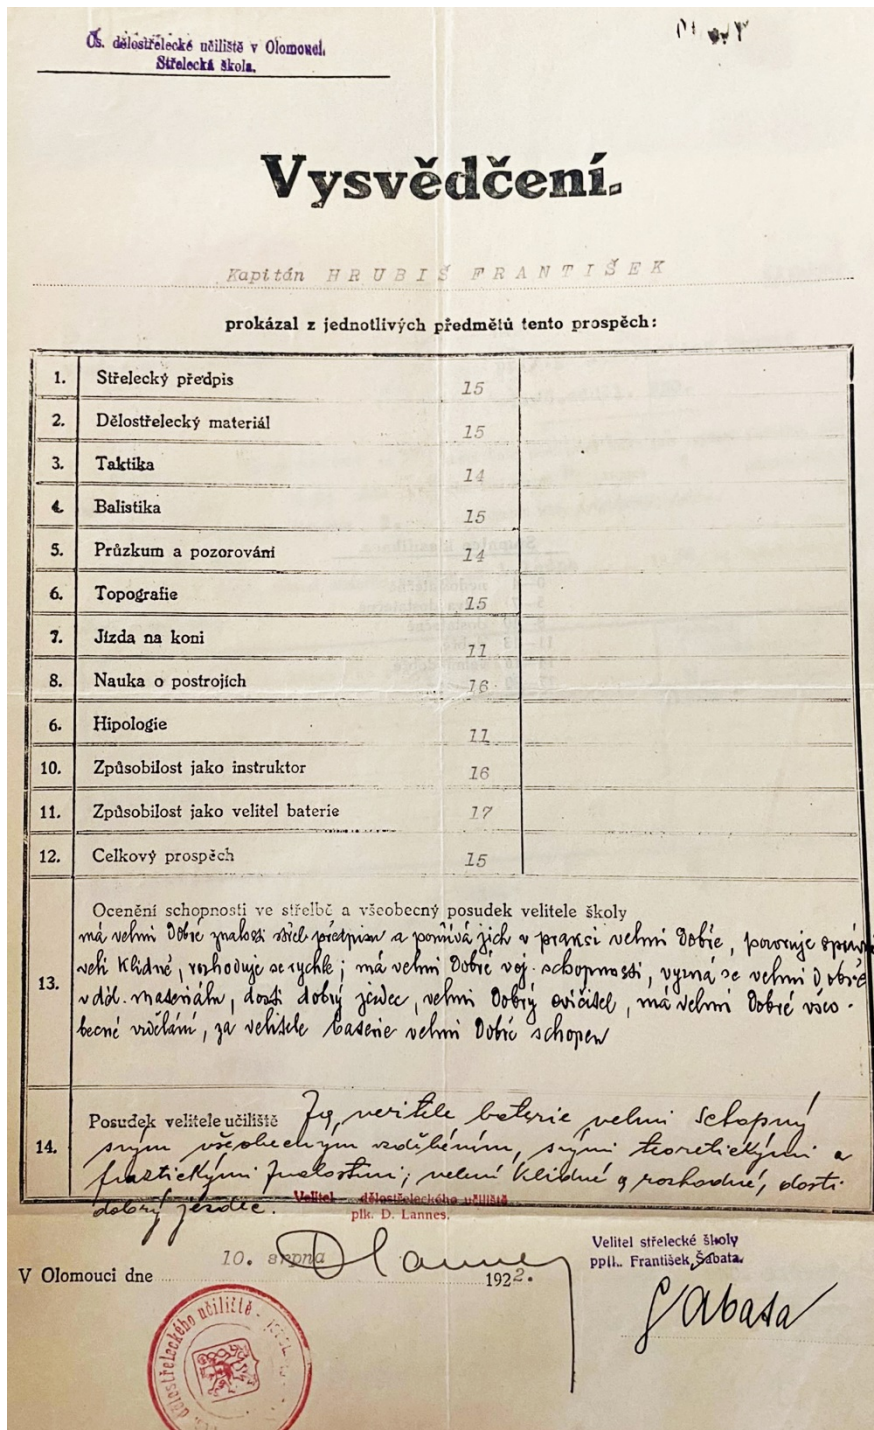 Čs. dělostřelecké učiliště v Olomouci.
Střelecká škola.
Vysvědčení.
Kapitán HRUBIŠ FRANTIŠEK
prokázal z jednotlivých předmětů tento prospěch:
1. Střelecký předpis 15
2. Dělostřelecký materiál 15
3. Taktika 14
4. Balistika 15
5. Průzkum a pozorování 14
6. Topografie 15
7. Jízda na koni 11
8. Nauka o postrojích 16
6. Hipologie 11
10. Způsobilost jako instruktor 16
11. Způsobilost jako velitel baterie 17
12. Celkový prospěch 15
Ocenění schopnosti ve střelbě a všeobecný posudek velitele školy
má velmi dobré znalosti střel. předpisu a používá jich v praksi velmi dobře, pozoruje správně
13. velí klidně, rozhoduje se rychle; má velmi dobré voj. schopnosti, vyzná se velmi dobře
v děl. materiálu, dosti dobrý jezdec, velmi dobrý cvičitel, má velmi dobré všeo-
becné vzdělání, za velitele baterie velmi dobře schopen
Posudek velitele učiliště Za velitele baterie velmi schopný
14. svým všeobecným vzděláním, svými teoretickými a
praktickými znalostmi; velení klidné a rozhodné, dosti
dobrý jezdec.
Velitel dělostřeleckého učiliště
plk. D. Lannes.
V Olomouci dne 10. srpna 1922.
D Lannes
Velitel střelecké školy
pplk. František Šabata.
Šabata
dělostřeleckého učiliště